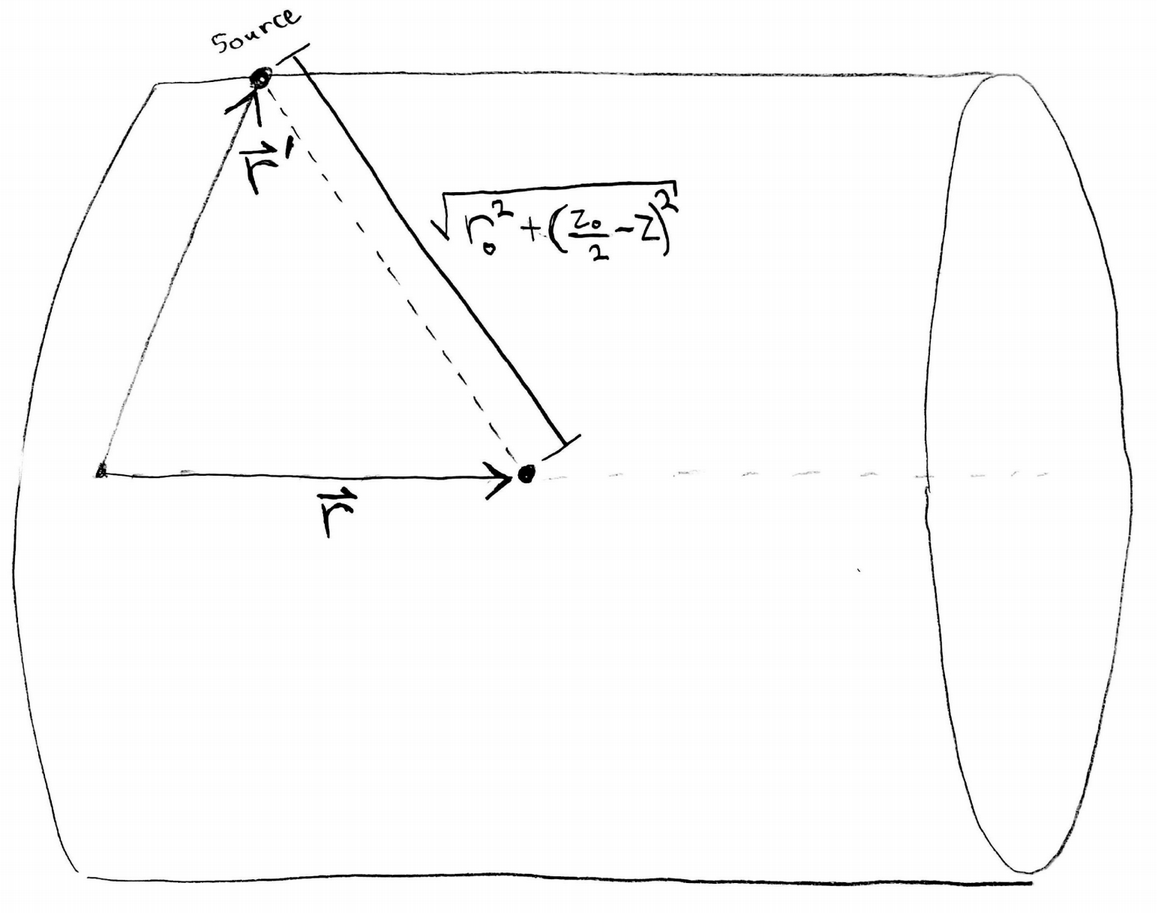 Source
r⃗'
√(r₀² + (z₀/2 - z)²)
r⃗